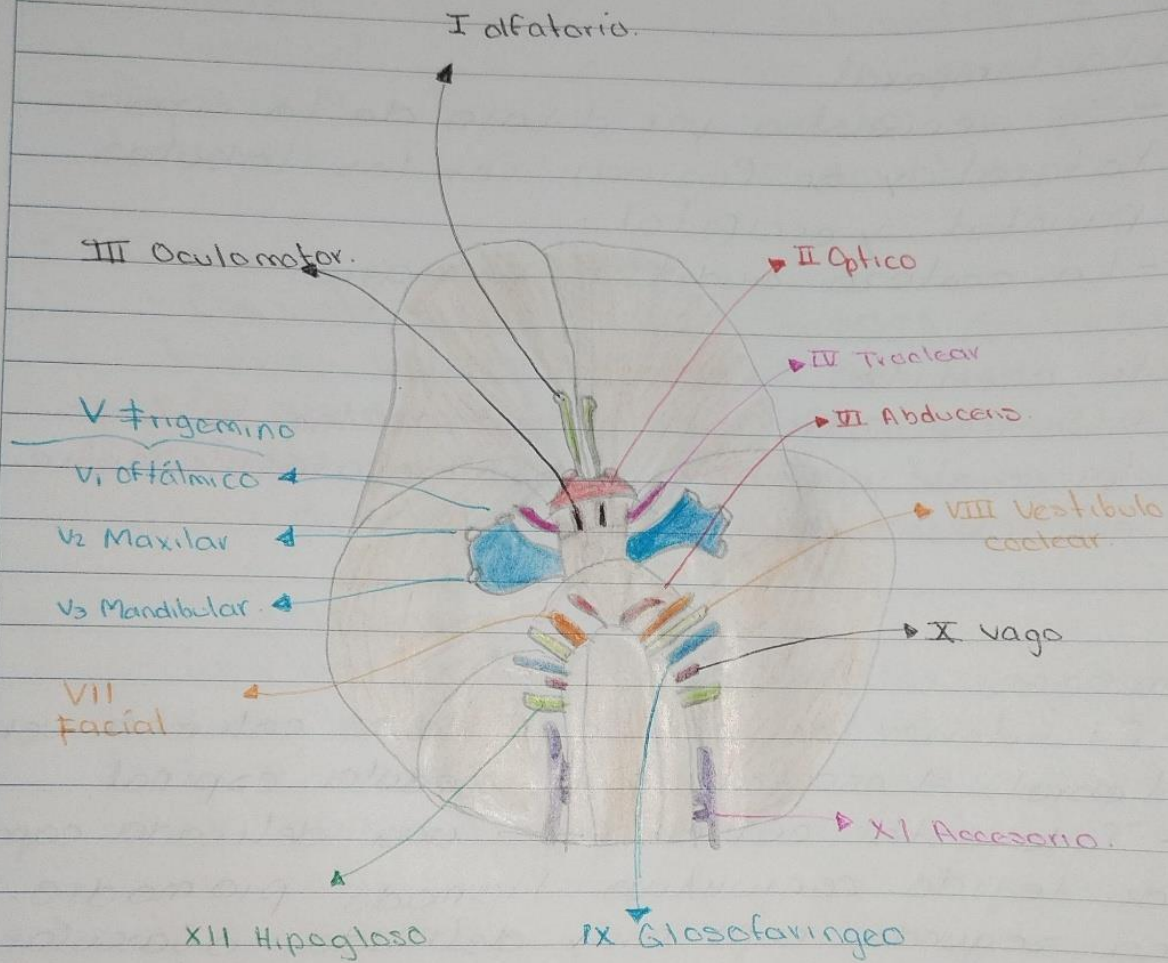 I olfatorio.
III Oculomotor.
II Optico
IV Troclear
VI Abducens.
V trigemino
V1 Oftálmico
V2 Maxilar
V3 Mandibular.
VIII Vestibulo
coclear.
X Vago
VII
Facial
XI Accesorio.
XII Hipogloso
IX Glosofaringeo